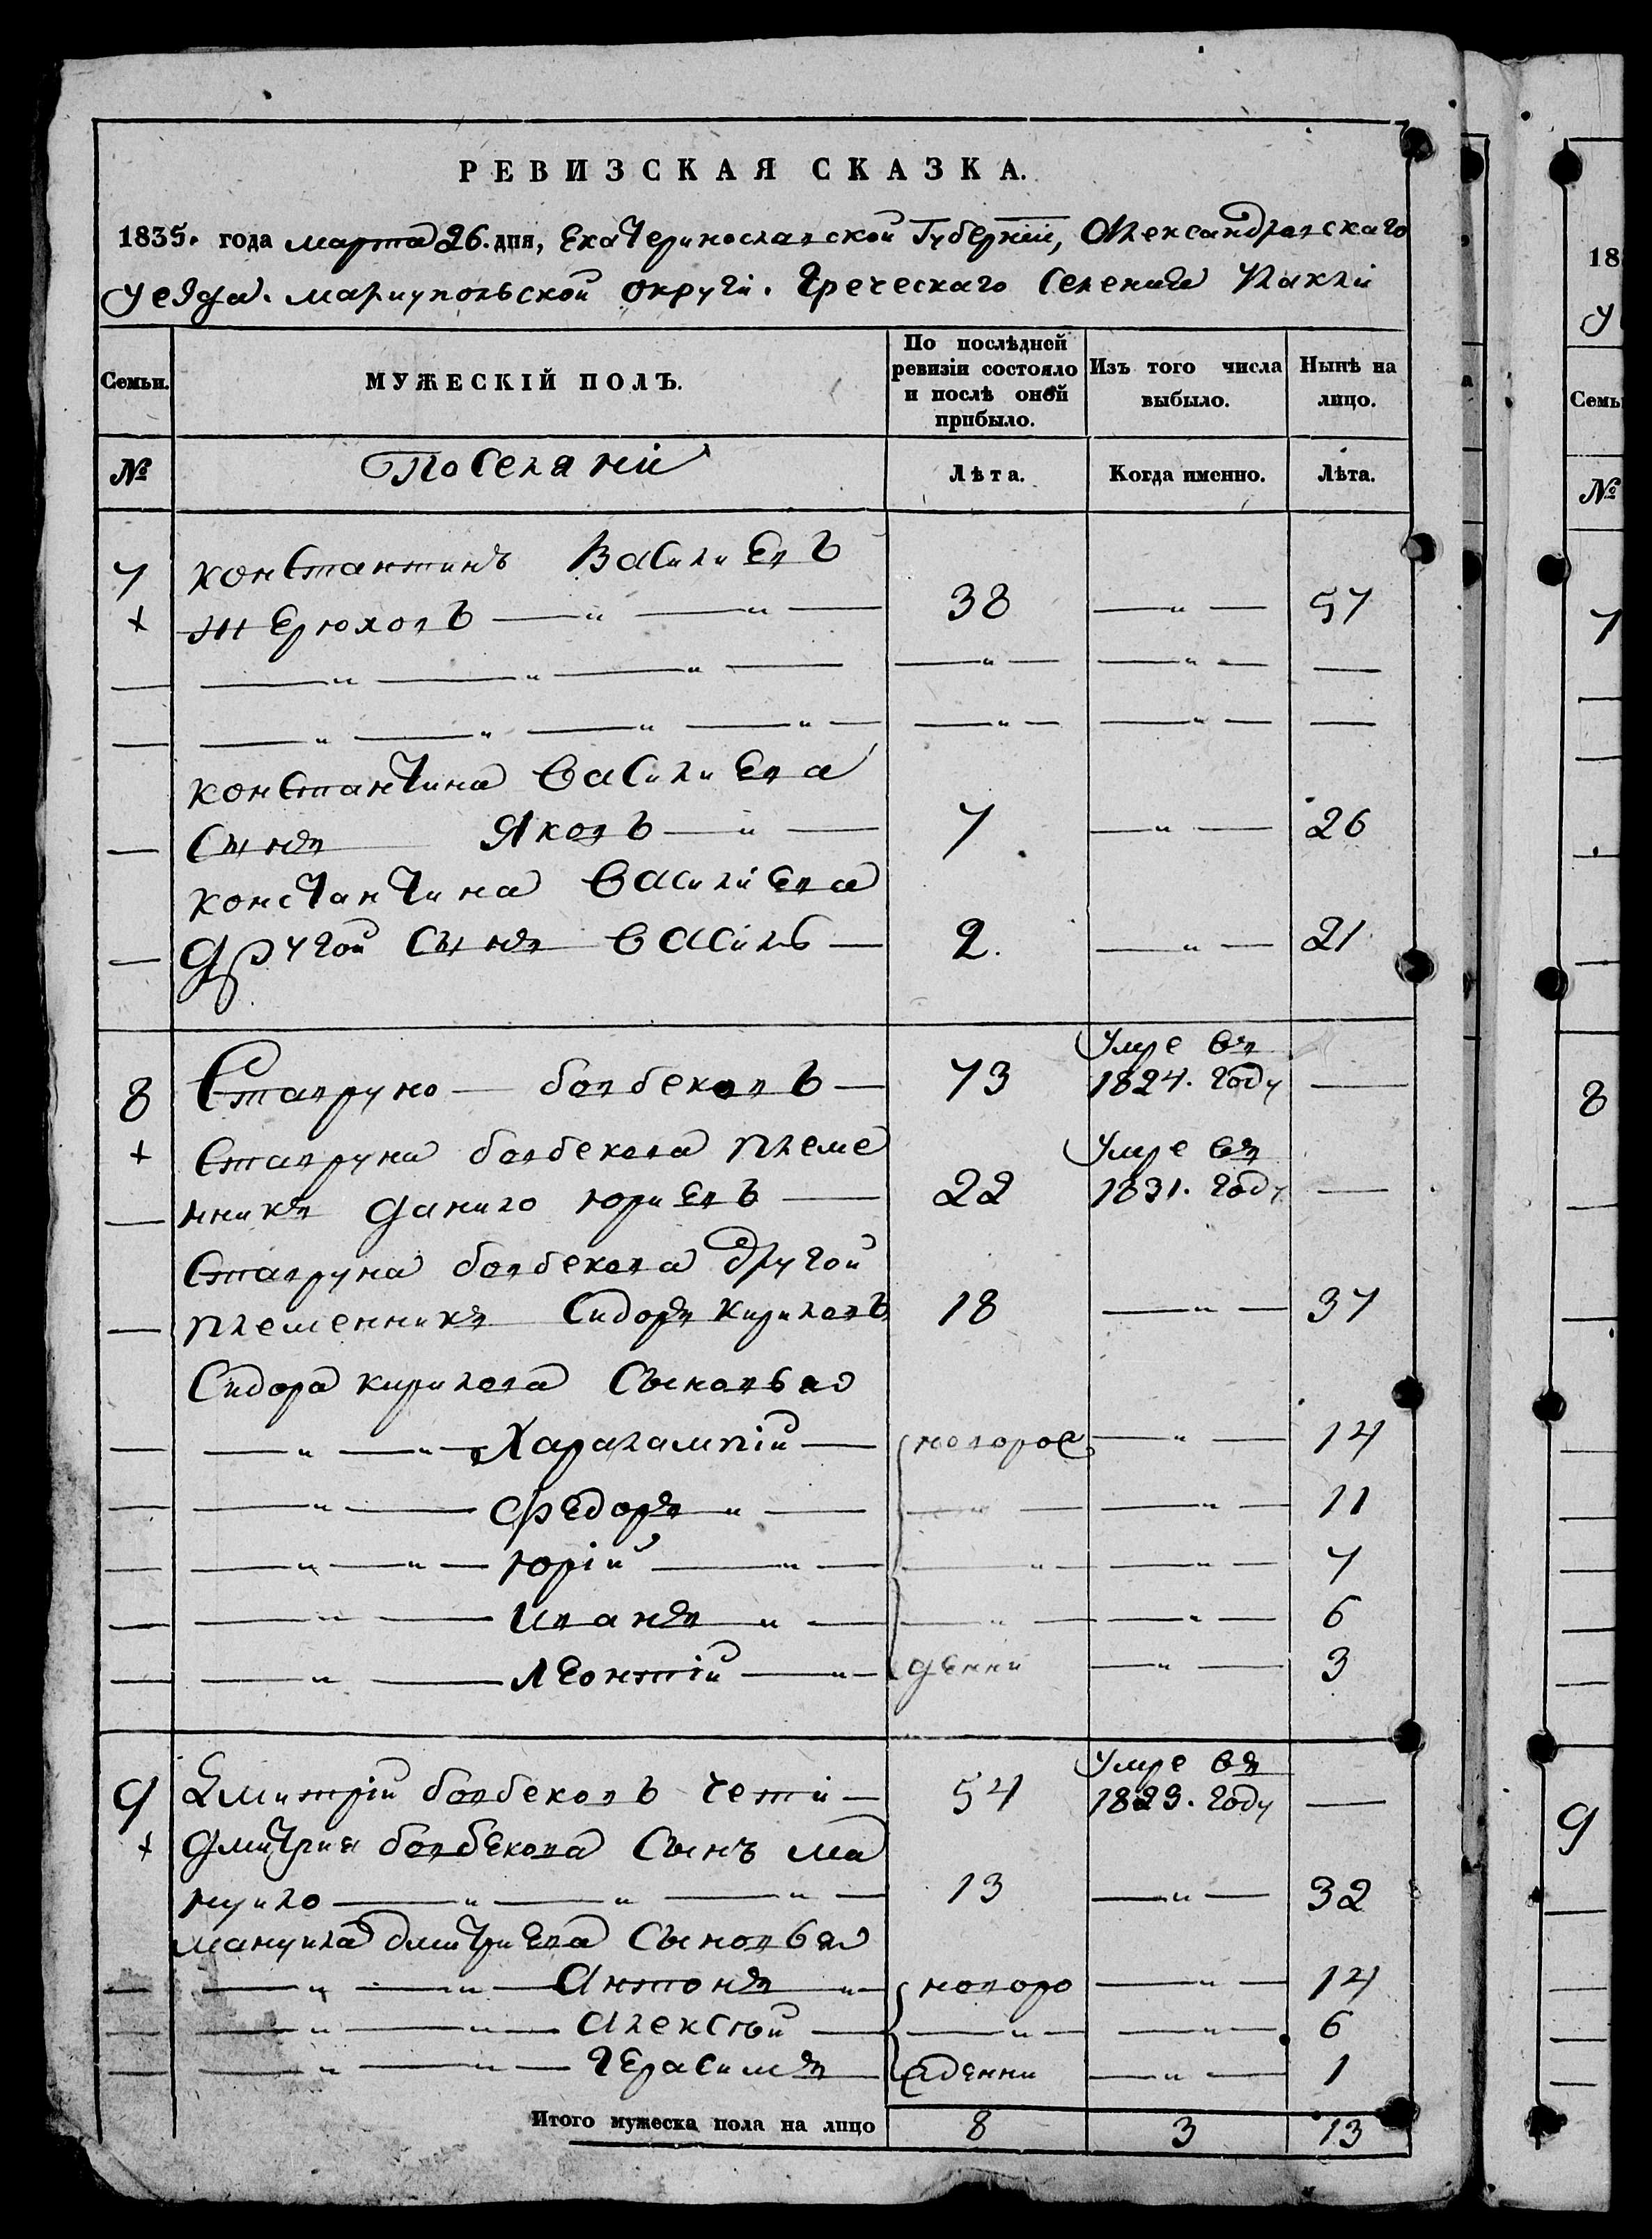 РЕВИЗСКАЯ СКАЗКА.
1835. года марта 26. дня, Екатеринославской Губерніи, Александровскаго
уезда. мариупольской округи. Греческаго Селения
Семьи. МУЖЕСКІЙ ПОЛЪ. По послѣдней ревизіи состояло и послѣ оной прибыло. Изъ того числа выбыло. Нынѣ на лицо.
№ Поселяни Лѣта. Когда именно. Лѣта.
7 Константинъ Василиевъ
+ 38 — " — 57
Константина Василиева
Сынъ Яковъ — " — 7 — " — 26
Константина Василіева
другой сынъ Василь — 2. — " — 21
Умре въ
8 Ставруно — бовбековъ — 73 1824. году —
+ Ставруна бовбекова племе Умре въ
нникъ данило юриевъ — 22 1831. году —
Ставруна бовбекова другой
племенникъ Сидоръ Кириловъ 18 — " — 37
Сидора Кирилова Сыновья
— " — " — Харалампій — новорос — " — 14
— " — Федоръ " — — " — — " — 11
— " — " — юрій — " — — " — — " — 7
— " — иванъ " — — " — — " — 6
— " — леонтій — " — денни — " — 3
Умре въ
9 Дмитрій бовбековъ чети — 54 1829. году —
+ Дмитрия бовбекова Сынъ ма
нуило — " — " — " — 13 — " — 32
мануила дмитриева Сыновья
— " — " — Антонъ " — новоро — " — 14
— " — " — Алексѣй — — " — — " — 6
— " — " — Герасимъ — жденни — " — 1
Итого мужеска пола на лицо 8 3 13
18
у
Семь
№
7
8
9